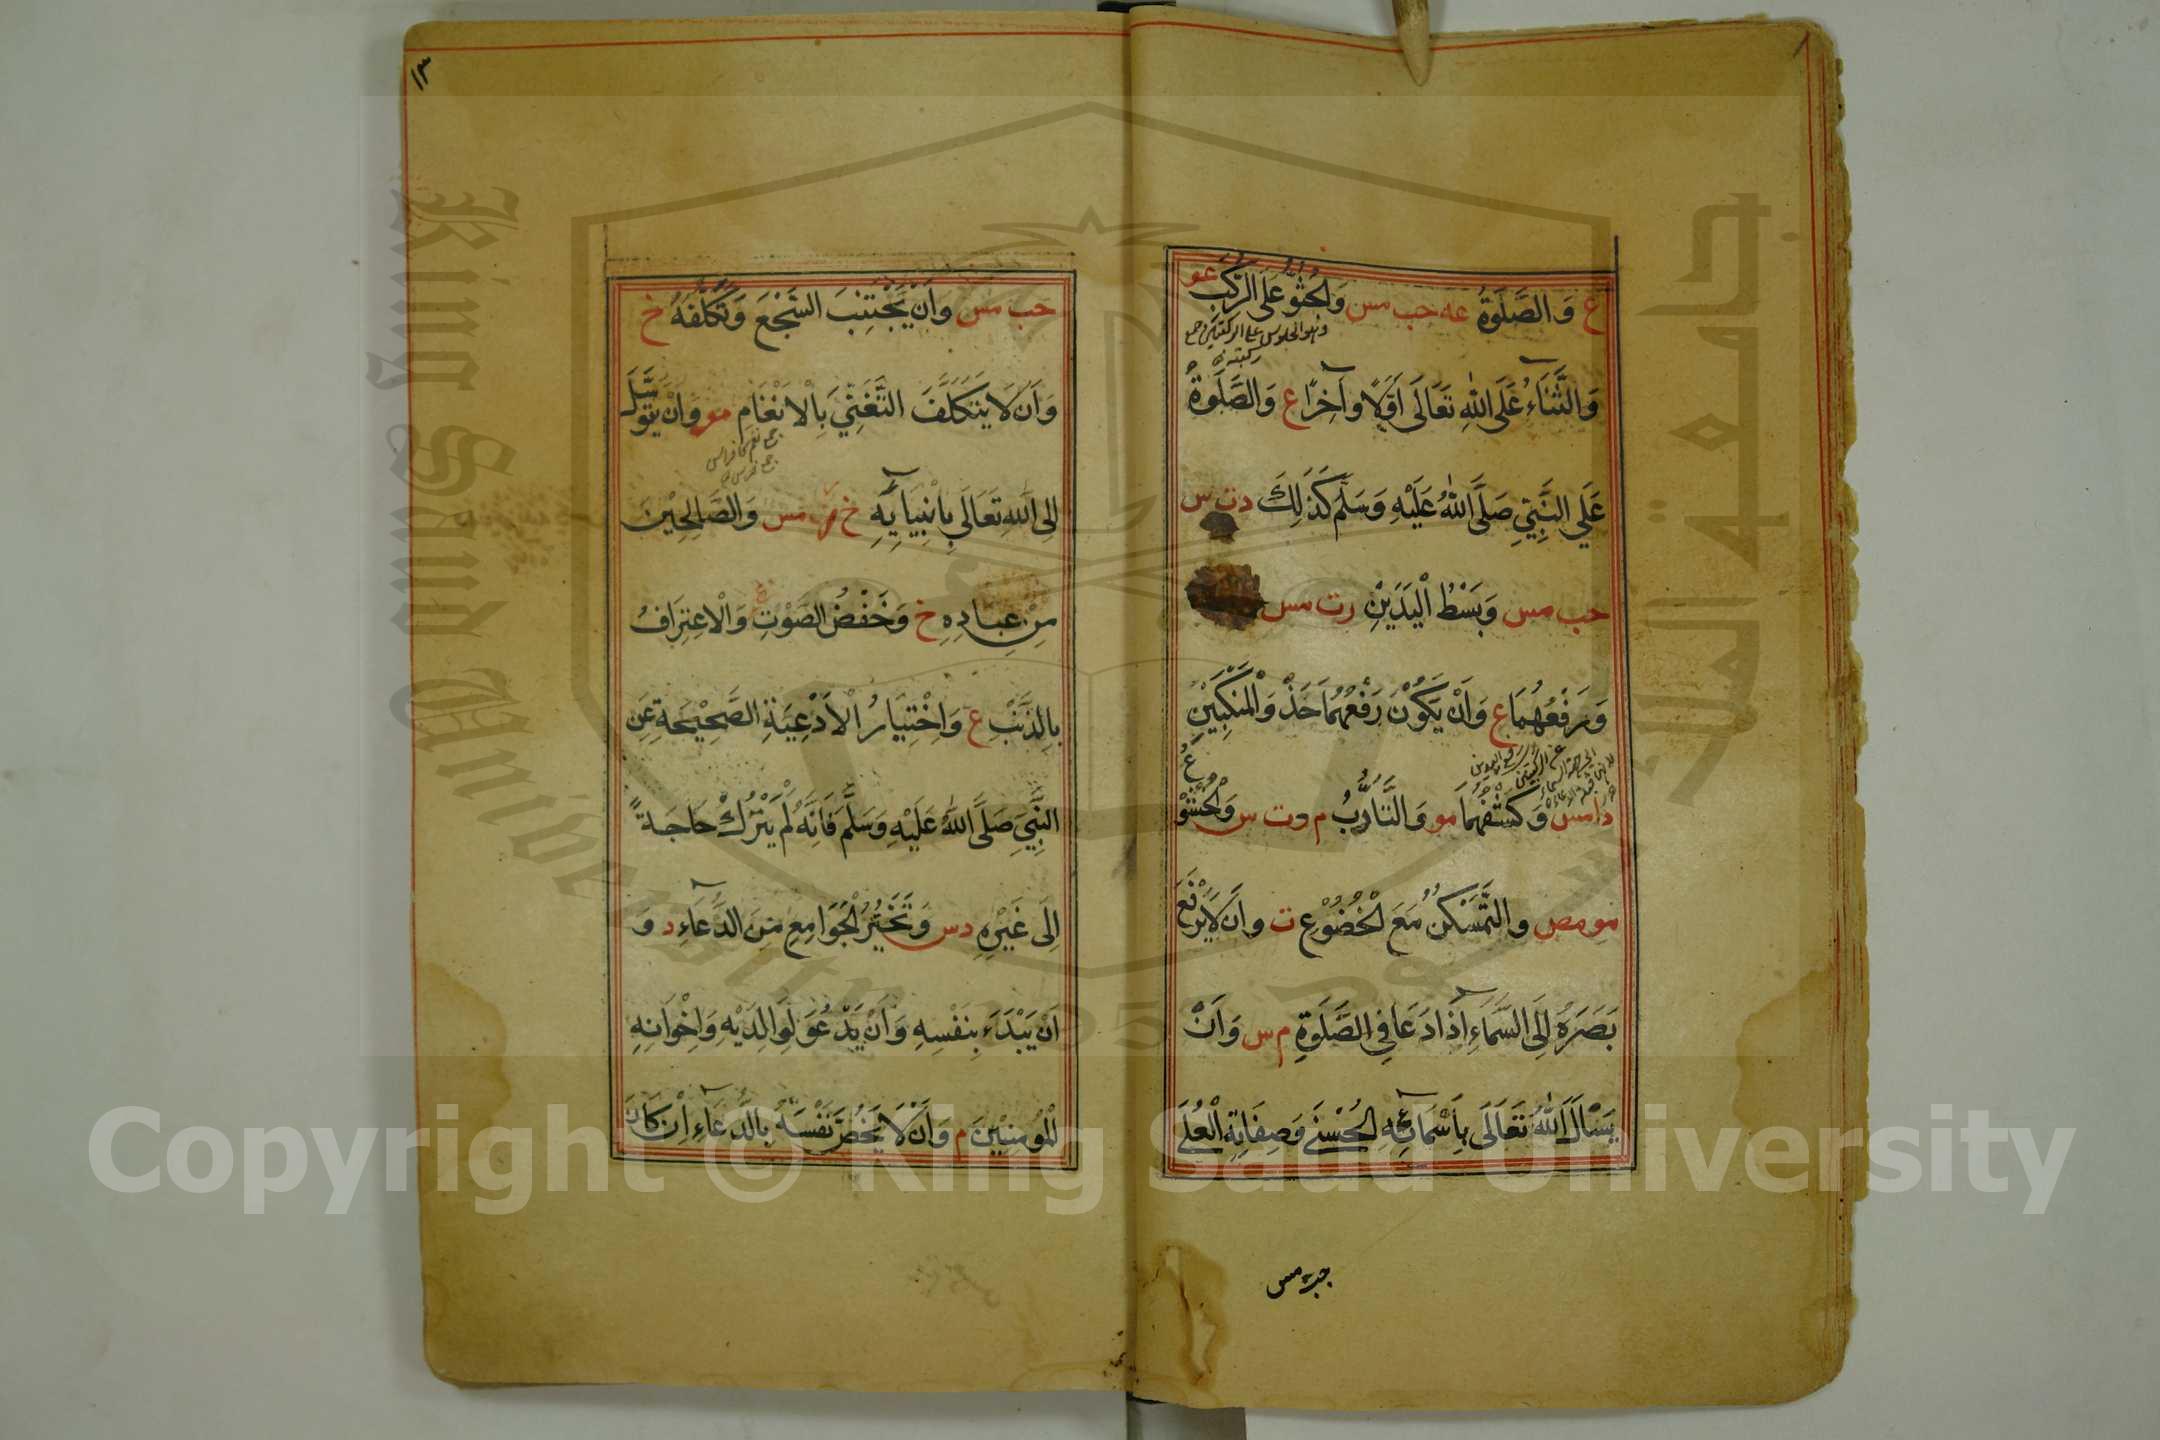 ع وَالصَّلٰوةُ عه حب مس وَالْجُثُوُّ عَلَى الرُّكَبِ عو
وهو الجلوس على الركبتين جمع
ركبته
وَالثَّنَآءُ عَلَى اللّٰهِ تَعَالَى اَوَّلًا وَآخِرًا ع وَالصَّلٰوةُ
عَلَي النَّبِيِّ صَلَّى اللّٰهُ عَلَيْهِ وَسَلَّمَ كَذٰلِكَ د ت س
حب مس وَبَسْطُ الْيَدَيْنِ ر ت مس
وَرَفْعُهُمَا ع وَاَنْ يَكُوْنَ رَفْعُهُمَا حَذْوَ الْمَنْكِبَيْنِ
د ا مس وَكَشْفُهُمَا مو وَالتَّاَدُّبُ م د ت س وَالْخُشُوْعُ
مو مص وَالتَّمَسْكُنُ مَعَ الْخُضُوْعِ ت وَاَنْ لَا يَرْفَعَ
بَصَرَهُ اِلَى السَّمَآءِ اِذَا دَعَا فِي الصَّلٰوةِ م س وَاَنْ
يَسْاَلَ اللّٰهَ تَعَالَى بِاَسْمَآئِهِ الْحُسْنَى وَصِفَاتِهِ الْعُلَى
حب مس
١٣
حب مس وَاَنْ يَجْتَنِبَ السَّجْعَ وَتَكَلُّفَهُ خ
وَاَنْ لَا يَتَكَلَّفَ التَّغَنِّيَ بِالْاَنْغَامِ مو وَاَنْ يَتَوَسَّلَ
اِلَى اللّٰهِ تَعَالَى بِاَنْبِيَآئِهِ خ ر مس وَالصَّالِحِيْنَ
مِنْ عِبَادِهِ خ وَخَفْضُ الصَّوْتِ وَالْاِعْتِرَافُ
بِالذَّنْبِ ع وَاخْتِيَارُ الْاَدْعِيَةِ الصَّحِيْحَةِ عَنِ
النَّبِيِّ صَلَّى اللّٰهُ عَلَيْهِ وَسَلَّمَ فَاِنَّهُ لَمْ يَتْرُكْ حَاجَةً
اِلَى غَيْرِهِ د س وَتَخَيُّرُ الْجَوَامِعِ مِنَ الدُّعَآءِ د وَ
اَنْ يَبْدَءَ بِنَفْسِهِ وَاَنْ يَدْعُوَ لِوَالِدَيْهِ وَاِخْوَانِهِ
الْمُومِنِيْنَ م وَاَنْ لَا يَخُصَّ نَفْسَهُ بِالدُّعَآءِ اِنْ كَانَ
King Saud University
1957
جامعة الملك سعود
Copyright © King Saud University